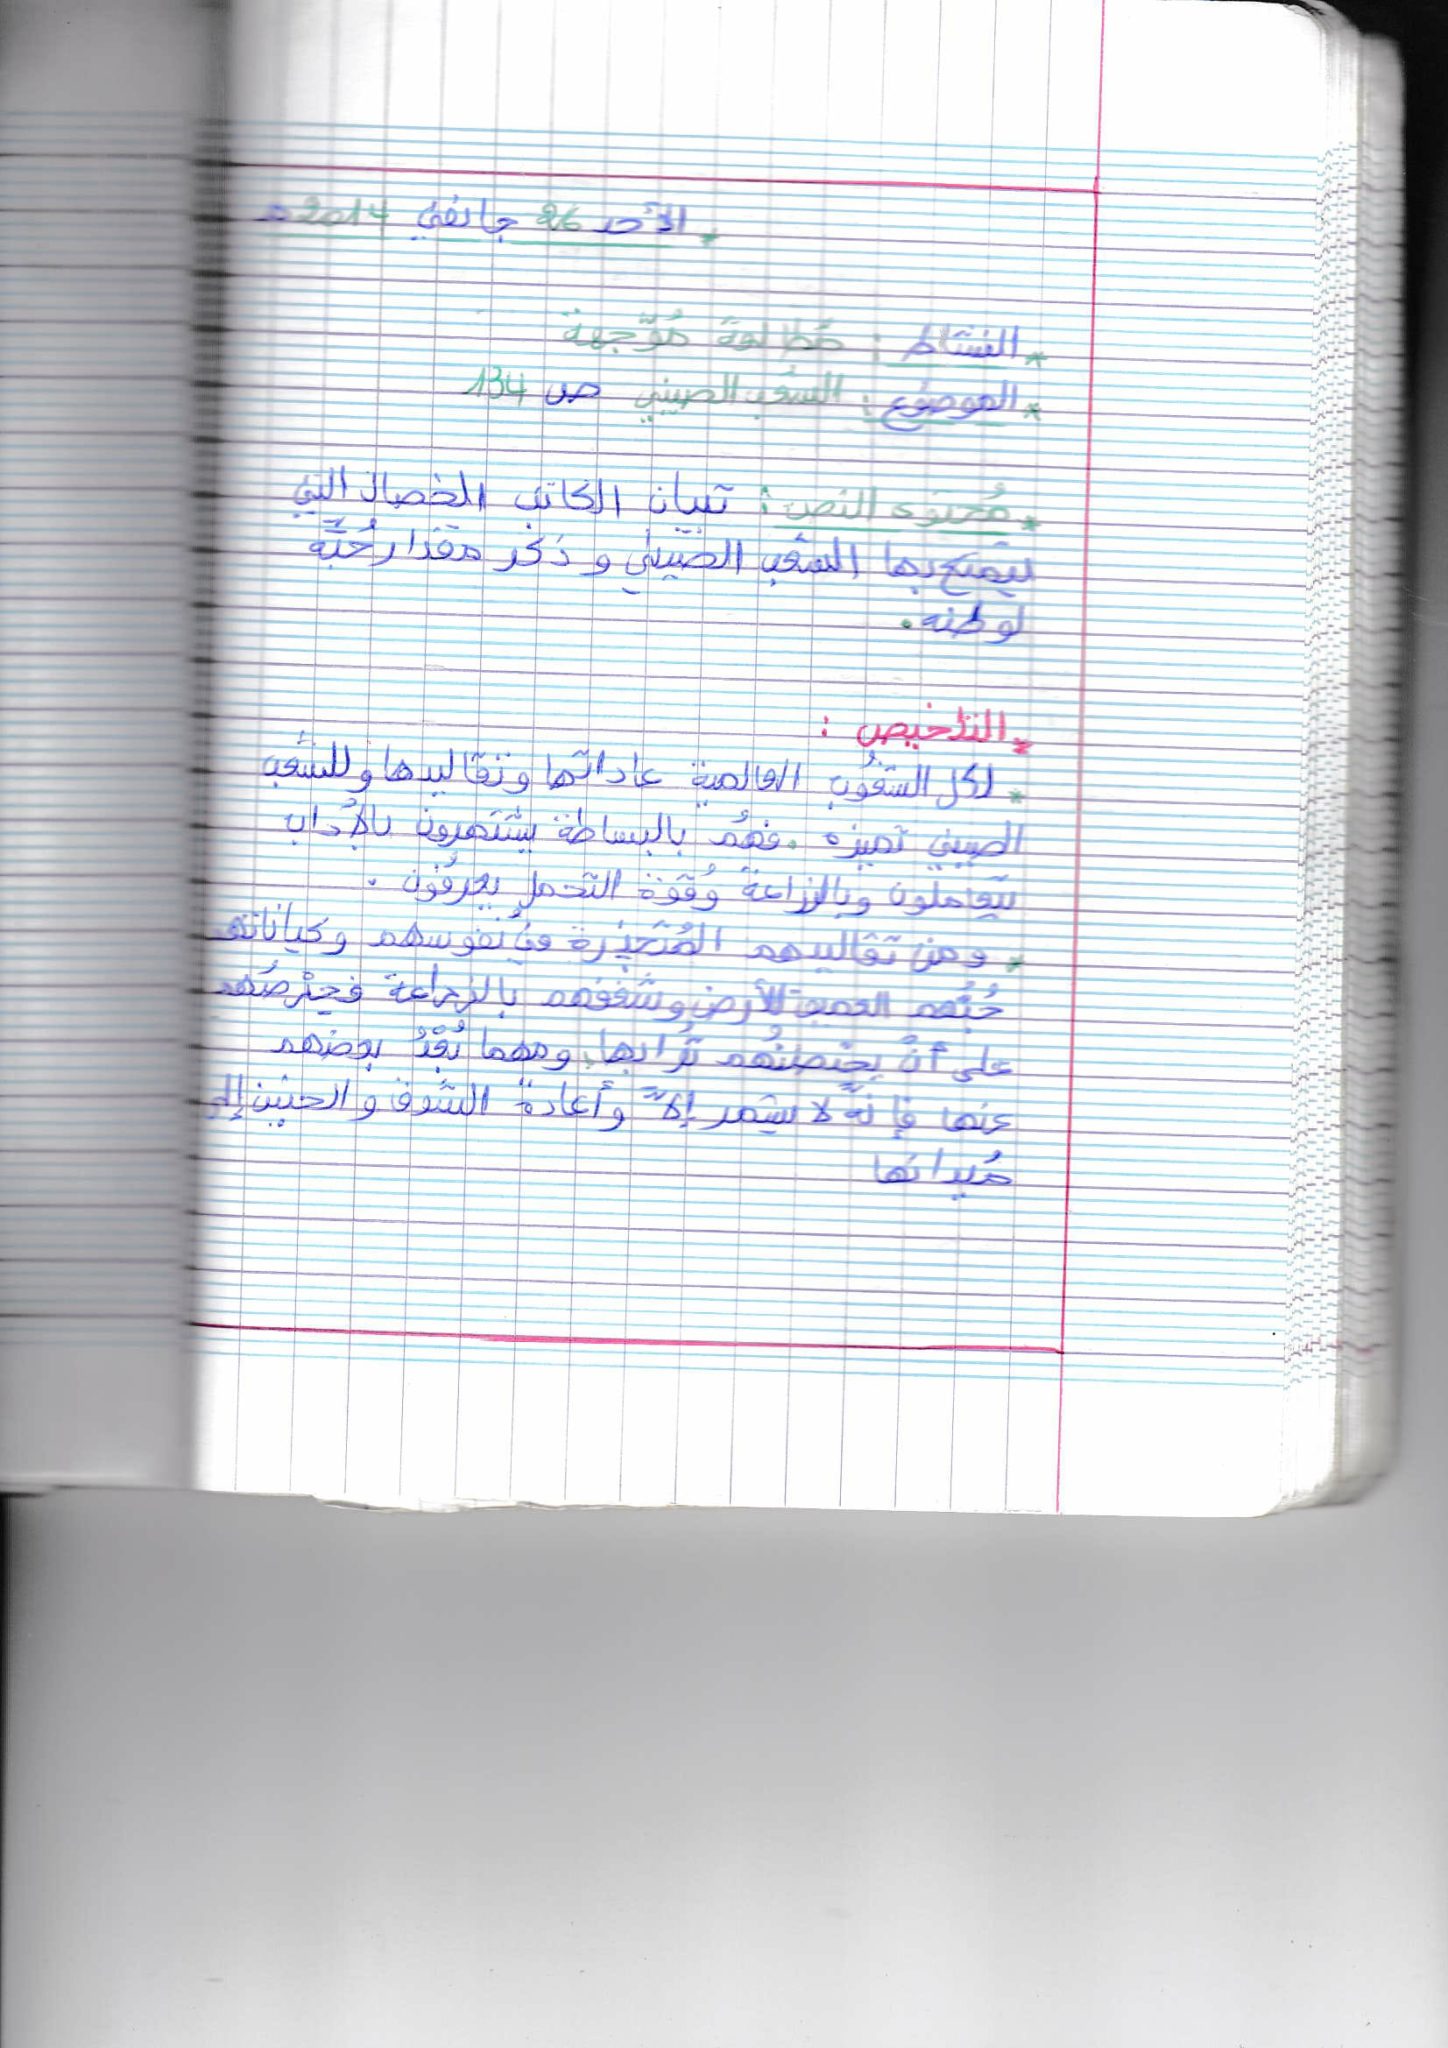 الأحد 26 جانفي 2014م
* النشاط : مطالعة مُوّجهة
* الموضوع : الشعب الصيني ص 134
* مُحتوى النص : تبيان الكاتب الخصال التي
يتمتع بها الشعب الصّيني و ذكر مقدار حُبّه
لوطنه .
* التلخيص :
* لكل الشعُوب العالمية عاداتها وتقاليدها وللشعب
الصيني تميزه . فهُم بالبساطة يشتهرون بالأداب
يتعاملون وبالزراعة وُقوة التحمل يعرفُون .
* ومن تقاليدهم المُتجذرة في نفوسهم وكياناتهم
حُبُّهم العميق للأرض وشغفهم بالزراعة فحِرْصُهم
على أنْ يحتضنُهم تُرابها ومهما بَعُدَ بعضهم
عنها فإنهَّ لا يستمر إلاّ وأعادهُ الشوق و الحنين إلى
مُيدانها